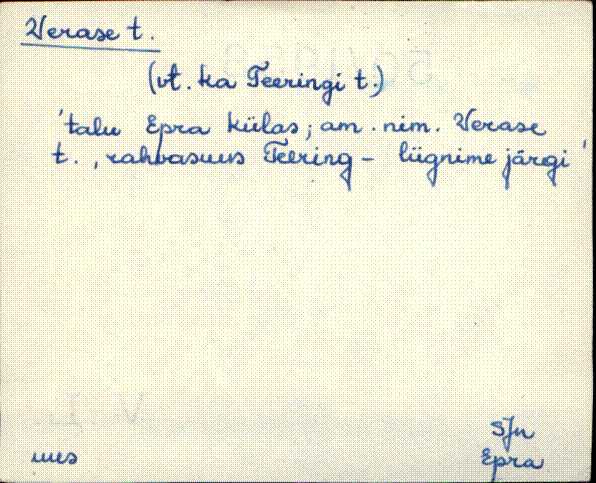 Verase t.
(vt. ka Teeringi t.)
'talu Epra külas; am. nim. Verase
t., rahvasuus Teering – liignime järgi'
SJn
uus Epra